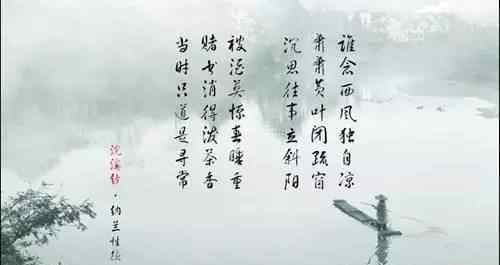 谁念西风独自凉
萧萧黄叶闭疏窗
沉思往事立斜阳
被酒莫惊春睡重
赌书消得泼茶香
当时只道是寻常
浣溪纱·纳兰性德